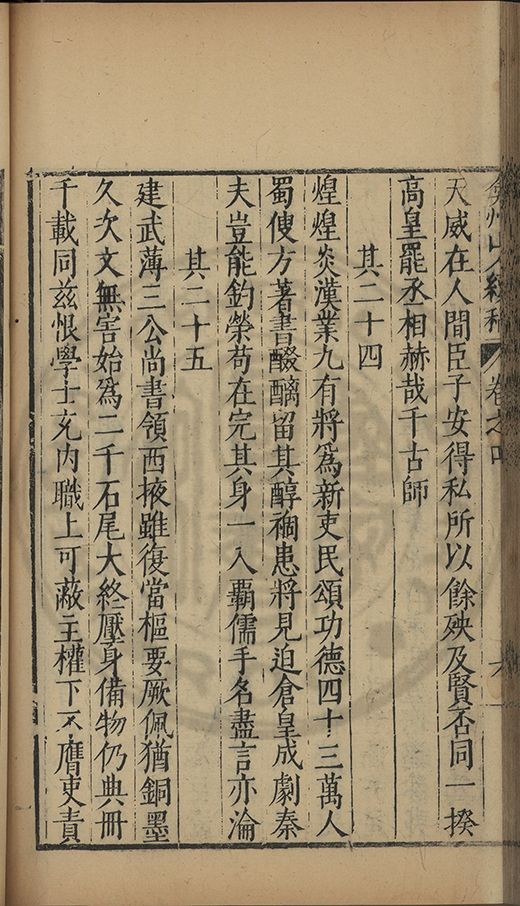 弇州山人續稿 卷之四 六
天威在人間臣子安得私所以餘殃及賢否同一揆
高皇罷丞相赫哉千古師
其二十四
煌煌炎漢業九有將爲新吏民頌功德四十三萬人
蜀傁方著書醊醨留其醇禍患將見迫倉皇成劇秦
夫豈能釣榮苟在完其身一入覇儒手名盡言亦淪
其二十五
建武薄三公尚書領西掖雖復當樞要厥佩猶銅墨
久次文無害始爲二千石尾大終壓身備物仍典冊
千載同兹恨學士充内職上可蔽主權下不膺吏責